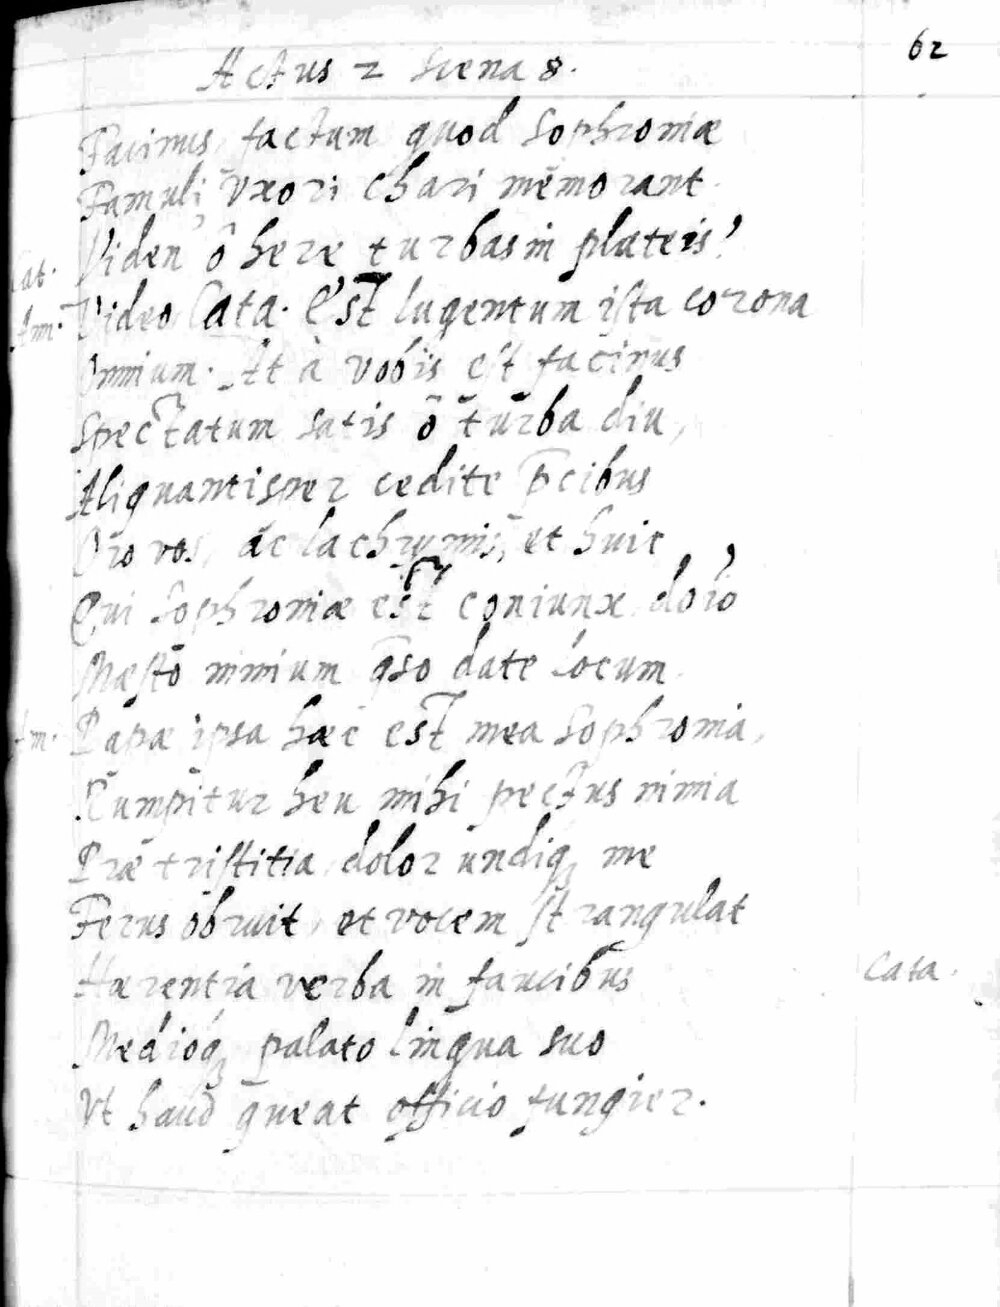 62
Actus 2 Scena 8.
Facinus, factum quod Sophroniæ
Famuli uxori chari mēmorant.
Cat. Viden' ô here turbas in plateis?
Am. Video Cata. Est lugentum ista corona
Omnium. At à vobis est facinus
Spectatum satis ô turba diu,
Aliquantisper cedite p̄cibus
Oro vos, ac lachrymis, et huic
Qui Sophroniæ est coniunx dolo
Mæsto nimium q̄so date locum.
Am. Papæ ipsa hæc est mea Sophronia,
Rumpitur heu mihi pectus nimia
Præ tristitia, dolor undiq; me
Ferus obruit, et vocem strangulat
Hærentia verba in faucibus
Cata.
Medioq; palato lingua suo
Vt haud queat officio fungier.